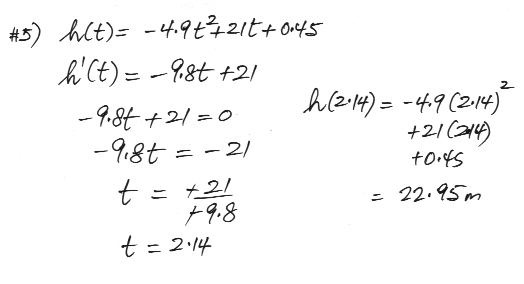 #5) h(t) = -4.9t²+21t+0.45
h'(t) = -9.8t +21
-9.8t +21 = 0
-9.8t = -21
t = +21/+9.8
t = 2.14
h(2.14) = -4.9(2.14)²
+21(2.14)
+0.45
= 22.95m